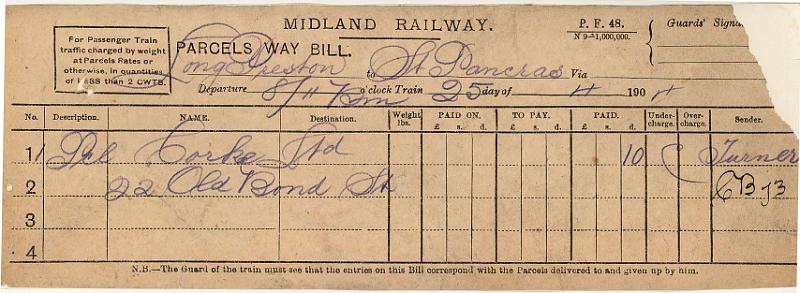 For Passenger Train
traffic charged by weight
at Parcels Rates or
otherwise, in quantities
of LESS than 2 CWTS.
MIDLAND RAILWAY.
PARCELS WAY BILL.
P. F. 48.
N 9—1,000,000.
Guards' Signa
Long Preston to St Pancras Via
Departure o'clock Train 25 day of 4 190 4
No. Description. NAME. Destination. Weight lbs. PAID ON. £ s. d. TO PAY. £ s. d. PAID. £ s. d. Under-charge. Over-charge. Sender.
1 1 Pcl Corke Ltd 10 Turner
2 22 Old Bond St
3
4
N.B.—The Guard of the train must see that the entries on this Bill correspond with the Parcels delivered to and given up by him.